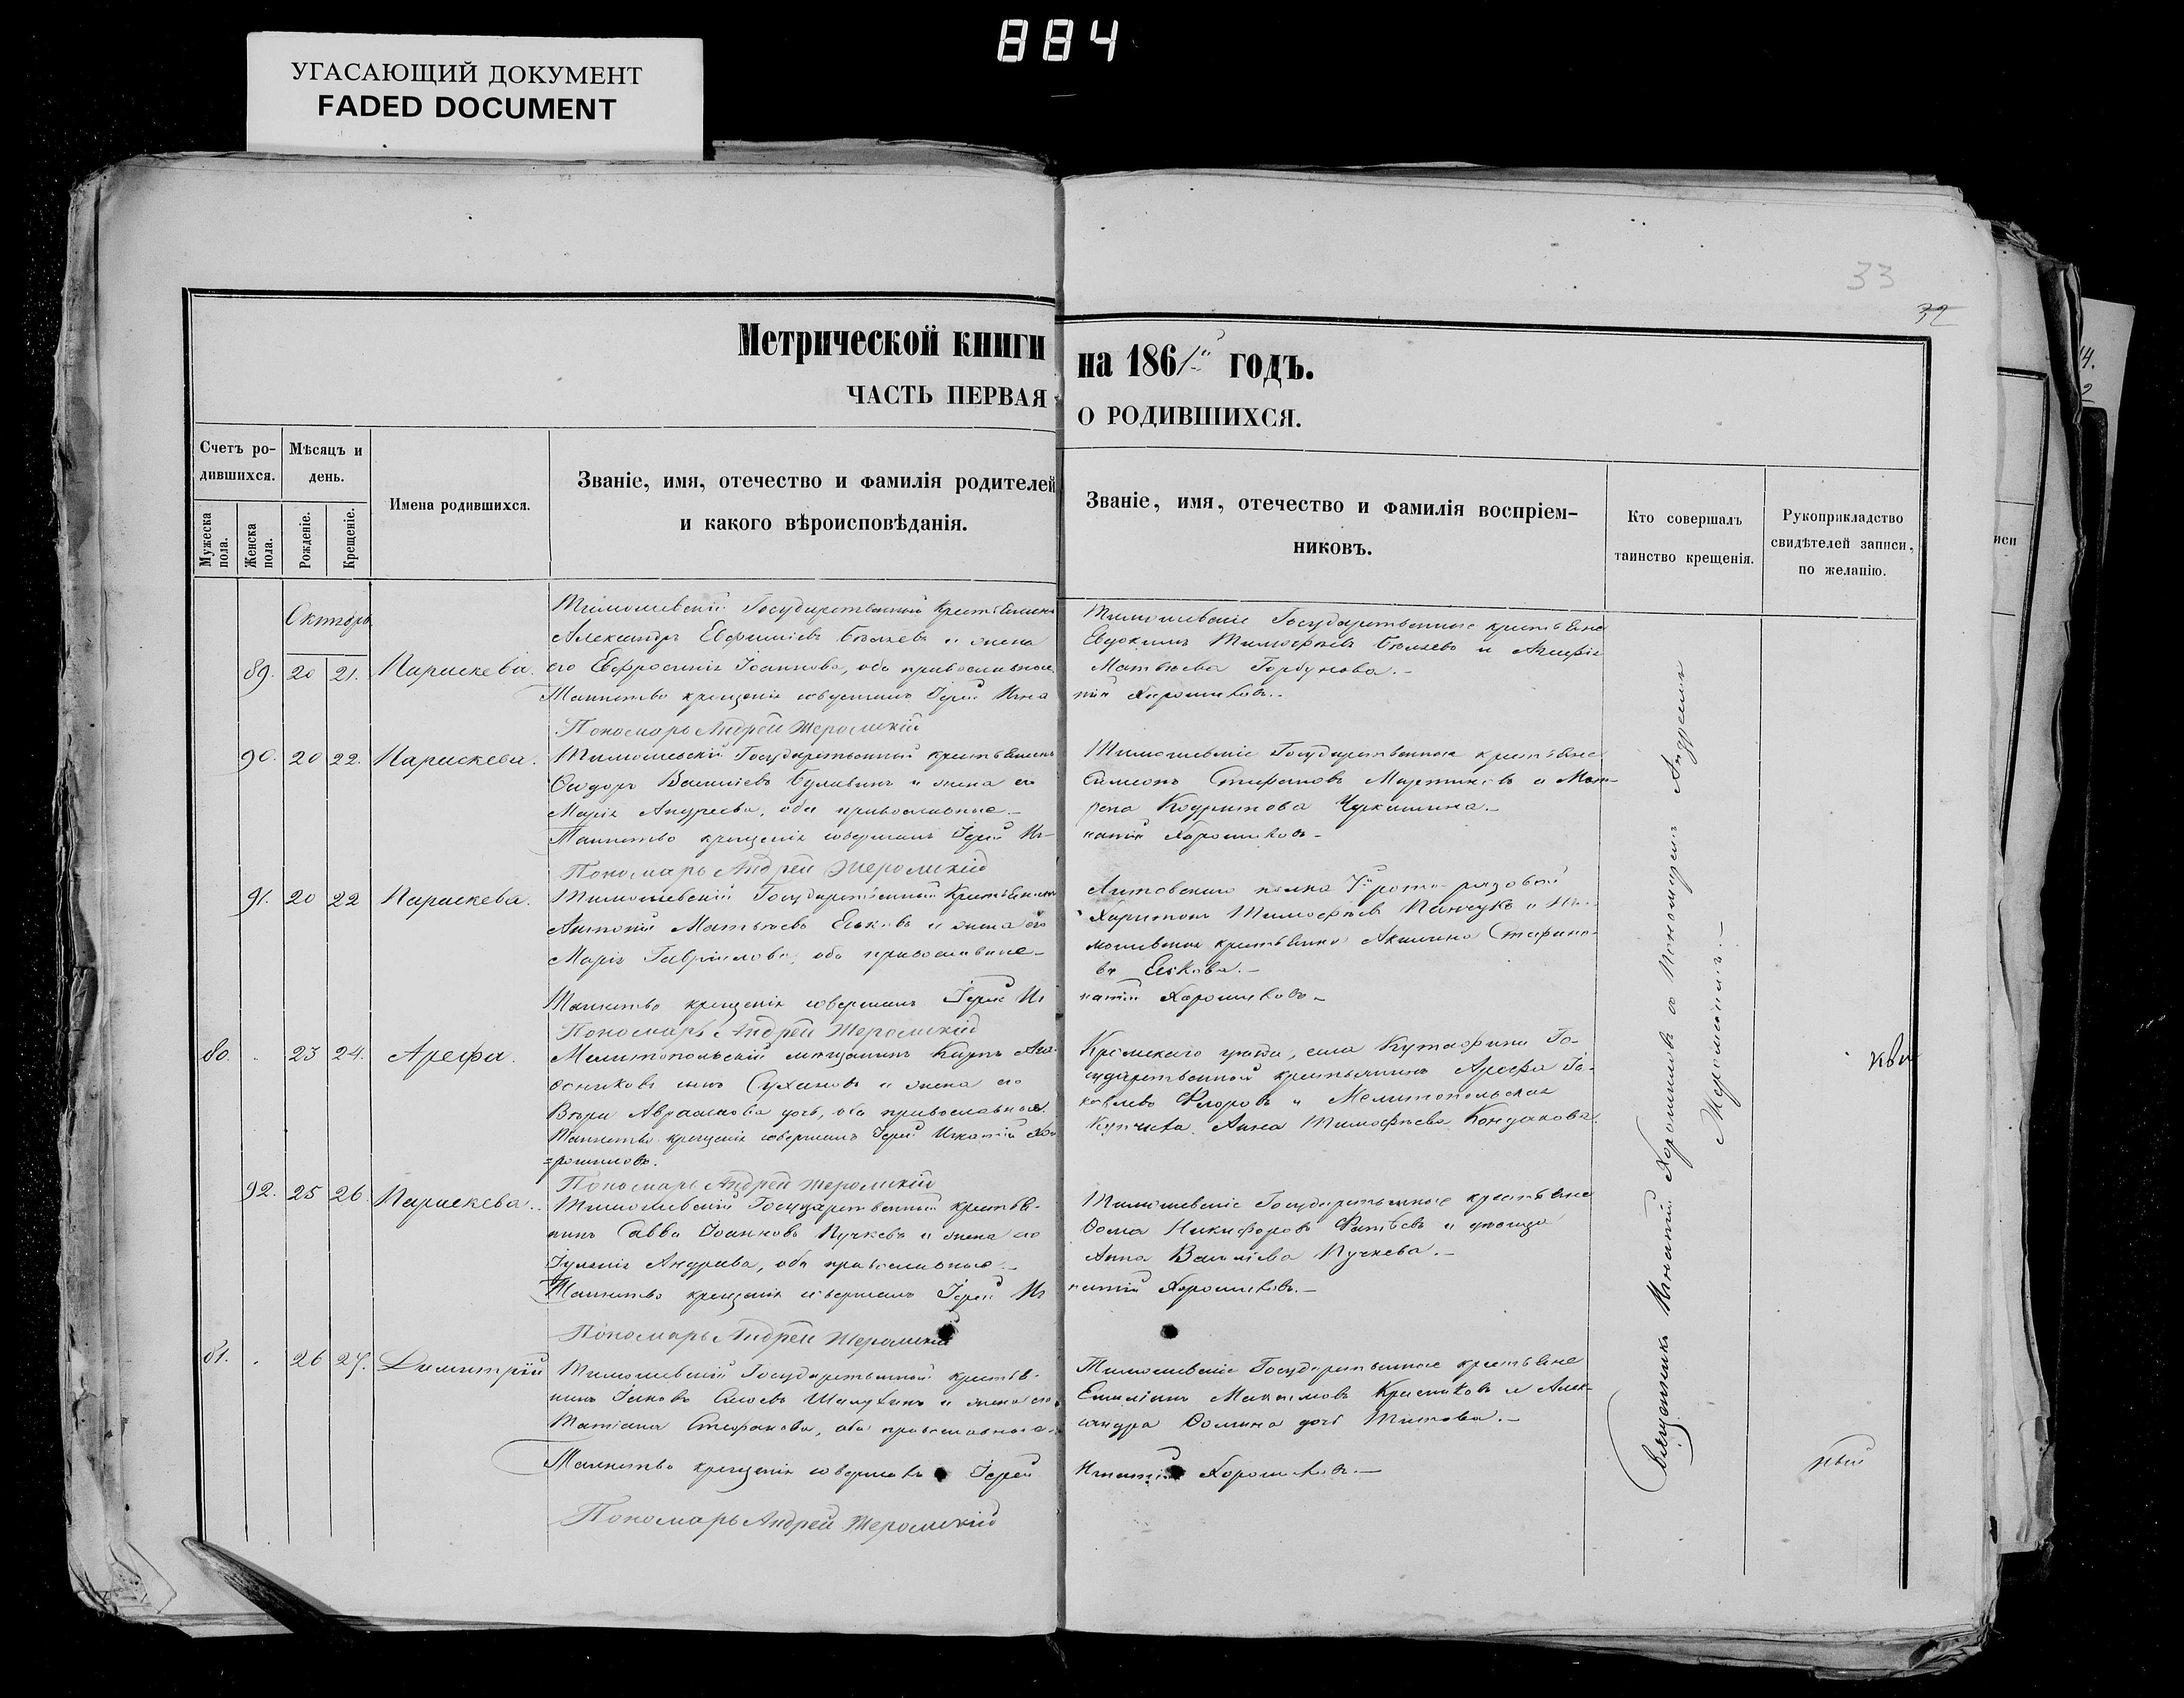 884
УГАСАЮЩИЙ ДОКУМЕНТ
FADED DOCUMENT
33
32
Метрической книги на 1861й годъ.
ЧАСТЬ ПЕРВАЯ О РОДИВШИХСЯ.
Счетъ ро-
дившихся.
Мѣсяцъ и
день.
Мужеска пола.
Женска пола.
Рожденіе.
Крещеніе.
Имена родившихся.
Званіе, имя, отечество и фамилія родителей
и какого вѣроисповѣданія.
Званіе, имя, отечество и фамилія воспріем-
никовъ.
Кто совершалъ
таинство крещенія.
Рукоприкладство
свидѣтелей записи,
по желанію.
Октябрь
89. 20 21. Параскева.
Тимошевскій Государственный крестьянинъ
Александръ Евфиміевъ и жена
его Евфросинія Іоаннова, оба православные.
Таинство крещенія совершалъ Іерей Игна
Пономарь Андрей Жеромскій
Тимошевскіе Государственные крестьяне
Евдокимъ Тимофѣевъ и
Матвѣева Горбунова.-
тій Хорошиловъ.-
90. 20 22. Параскева.
Тимошевскій Государственный крестьянинъ
Ѳеодоръ Василіевъ Булавинъ и жена его
Марія Андреева, оба православные.-
Таинство крещенія совершалъ Іерей Иг-
Пономарь Андрей Жеромскій
Тимошевскіе Государственные крестьяне
Симеонъ Стефановъ Мартиновъ и Мат-
рена Кодратова Чукашина.-
натій Хорошиловъ.-
91. 20 22 Параскева.
Тимошевскій Государственный крестьянинъ
Антоній Матвѣевъ Еськовъ и жена его
Марія Гавріилова, оба православные.-
Таинство крещенія совершалъ Іерей Иг
Пономарь Андрей Жеромскій
Литовскаго полка 7й роты рядовой
Харитонъ Тимофѣевъ Панчукъ и
мошевская крестьянка Акилина Стефано-
ва Еськова.-
натій Хорошиловъ.-
80. 23 24. Арефа.
Мелитопольскій мѣщанинъ Карпъ
сынъ Сухановъ и жена его
Вѣра Авраамова дочь, оба православные.
Таинство крещенія совершалъ Іерей Игнатій Хо-
=рошиловъ.
Пономарь Андрей Жеромскій
уѣзда, села Го-
сударственный крестьянинъ Арефа Іа-
ковлевъ Ѳедоровъ и Мелитопольская
Купчиха Анна Тимофѣева Кондакова.
92. 25 26. Параскева.
Тимошевскій Государственный крестья-
нинъ Савва Іоанновъ Пучковъ и жена его
Іуліанія Андреева, оба православные.-
Таинство крещенія совершалъ Іерей Иг
Пономарь Андрей Жеромскій
Тимошевскіе Государственные крестьяне
Ѳома Никифоровъ Фатѣевъ и дѣвица
Анна Василіева Пучкова.-
натій Хорошиловъ.-
81. 26 27. Димитрій
Тимошевскій Государственный крестья-
нинъ Іаковъ и жена его
Татіана Стефанова, оба православные.-
Таинство крещенія совершалъ Іерей
Пономарь Андрей Жеромскій
Тимошевскіе Государственные крестьяне
Емиліанъ Максимовъ Красниковъ и Алек-
сандра Ѳомина дочь Титова.-
Игнатій Хорошиловъ.-
Священникъ Игнатій Хорошиловъ съ Пономаремъ Андреемъ
Жеромскимъ.-